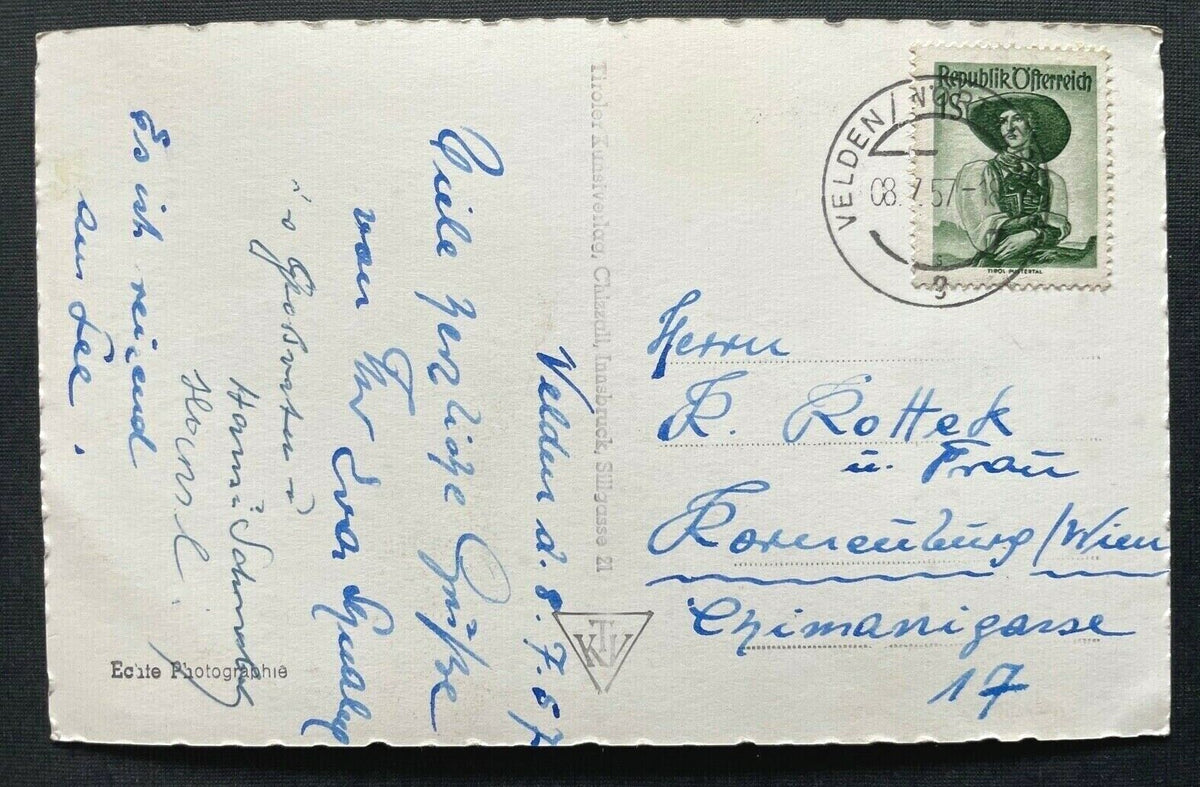 Velden d. 8. 7. 57
Viele herzliche Grüße
von
Ihr
Großvater
Hansl.
Es ist reizend
am See.
Echte Photographie
Tiroler Kunstverlag, Chizzali, Innsbruck, Sillgasse 21
KTV
Republik Österreich
1S
TIROL PUSTERTAL
VELDEN/
08. 7. 57-18
g
Herrn
R. Rottek
u. Frau
Korneuburg/Wien
Chimanigasse
17